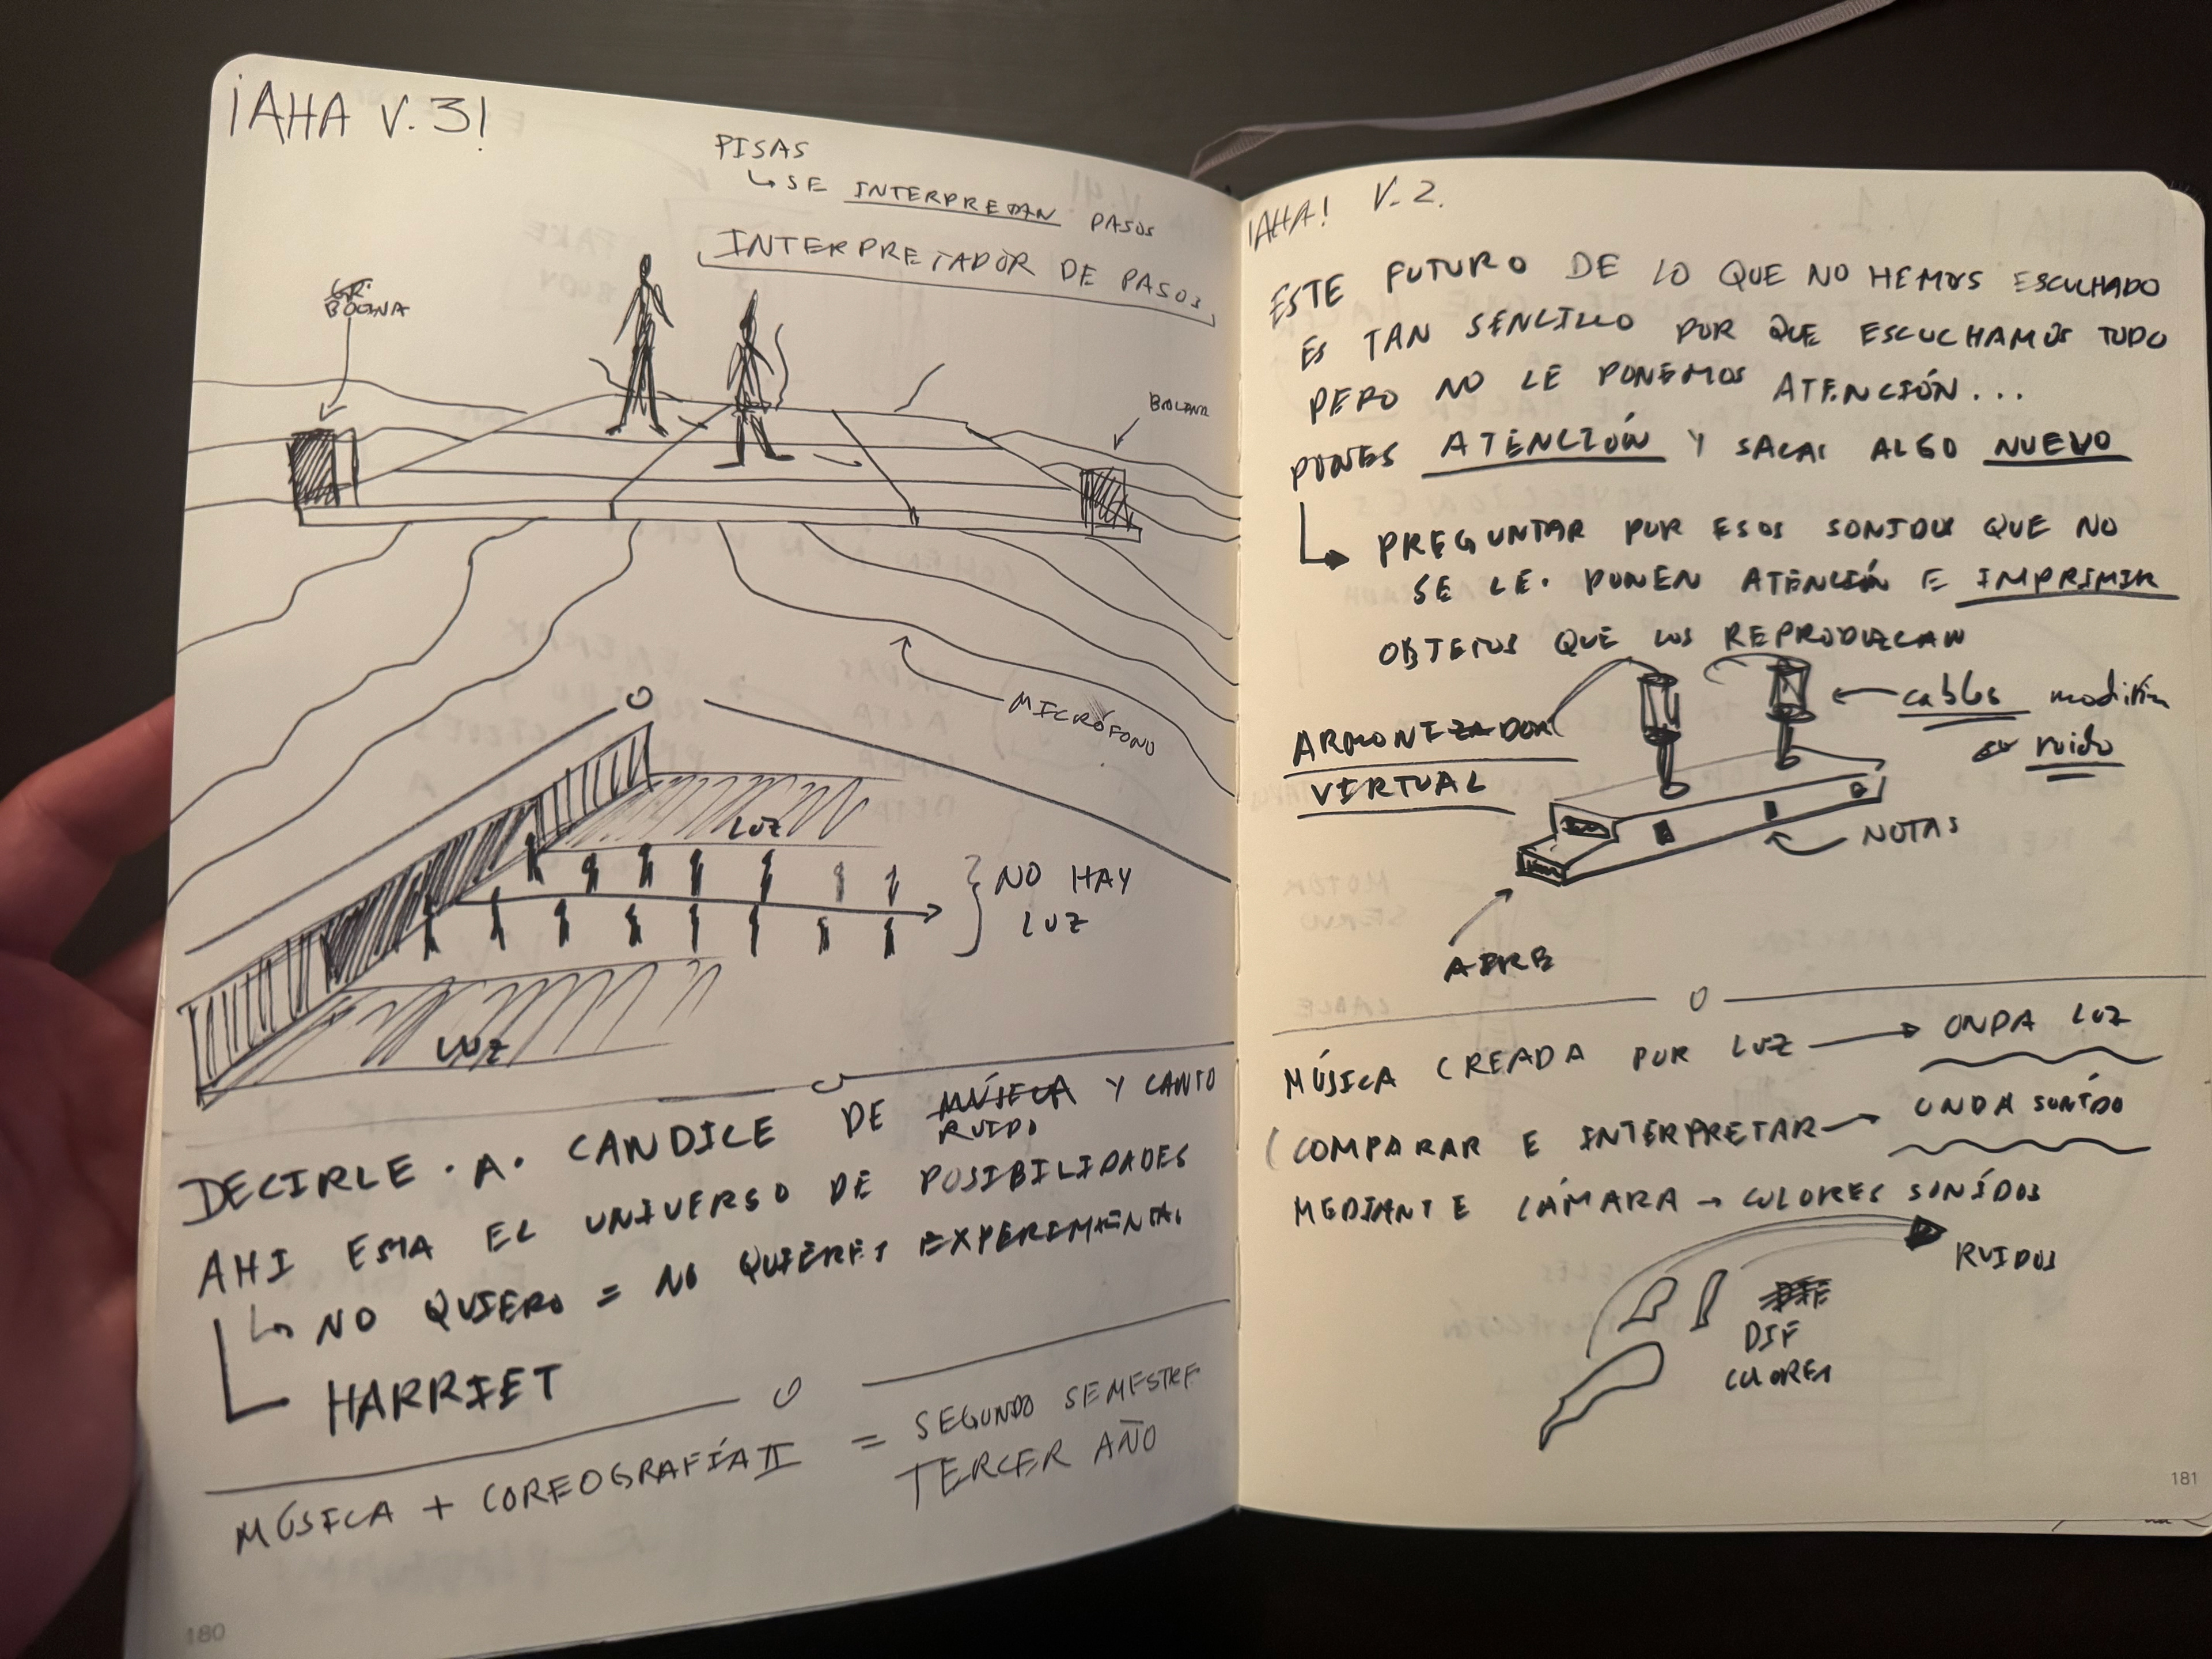 ¡AHA V.3!
PISAS
↳ SE INTERPRETAN PASOS
INTERPRETADOR DE PASOS
BOCINA
BOCINA
MICRÓFONO
LUZ
NO HAY
LUZ
LUZ
DECIRLE . A . CANDICE DE MÚSICA Y CANTO
RUIDO
AHI ESTA EL UNIVERSO DE POSIBILIDADES
↳ NO QUIERO = NO QUIERES EXPERIMENTAR
HARRIET
MÚSICA + COREOGRAFÍA II = SEGUNDO SEMESTRE
TERCER AÑO
180
¡AHA! V.2.
ESTE FUTURO DE LO QUE NO HEMOS ESCUCHADO
ES TAN SENCILLO POR QUE ESCUCHAMOS TODO
PERO NO LE PONEMOS ATENCIÓN...
PONES ATENCIÓN Y SACAS ALGO NUEVO
↳ PREGUNTAR POR ESOS SONIDOS QUE NO
SE LE . PONEN ATENCIÓN E IMPRIMIR
OBJETOS QUE LOS REPRODUZCAN
ARMONIZADOR
VIRTUAL
cables
ruido
NOTAS
ABRE
MÚSICA CREADA POR LUZ → ONDA LUZ
(COMPARAR E INTERPRETAR → ONDA SONIDO
MEDIANTE CÁMARA → COLORES SONIDOS
RUIDOS
DIF
COLORES
181